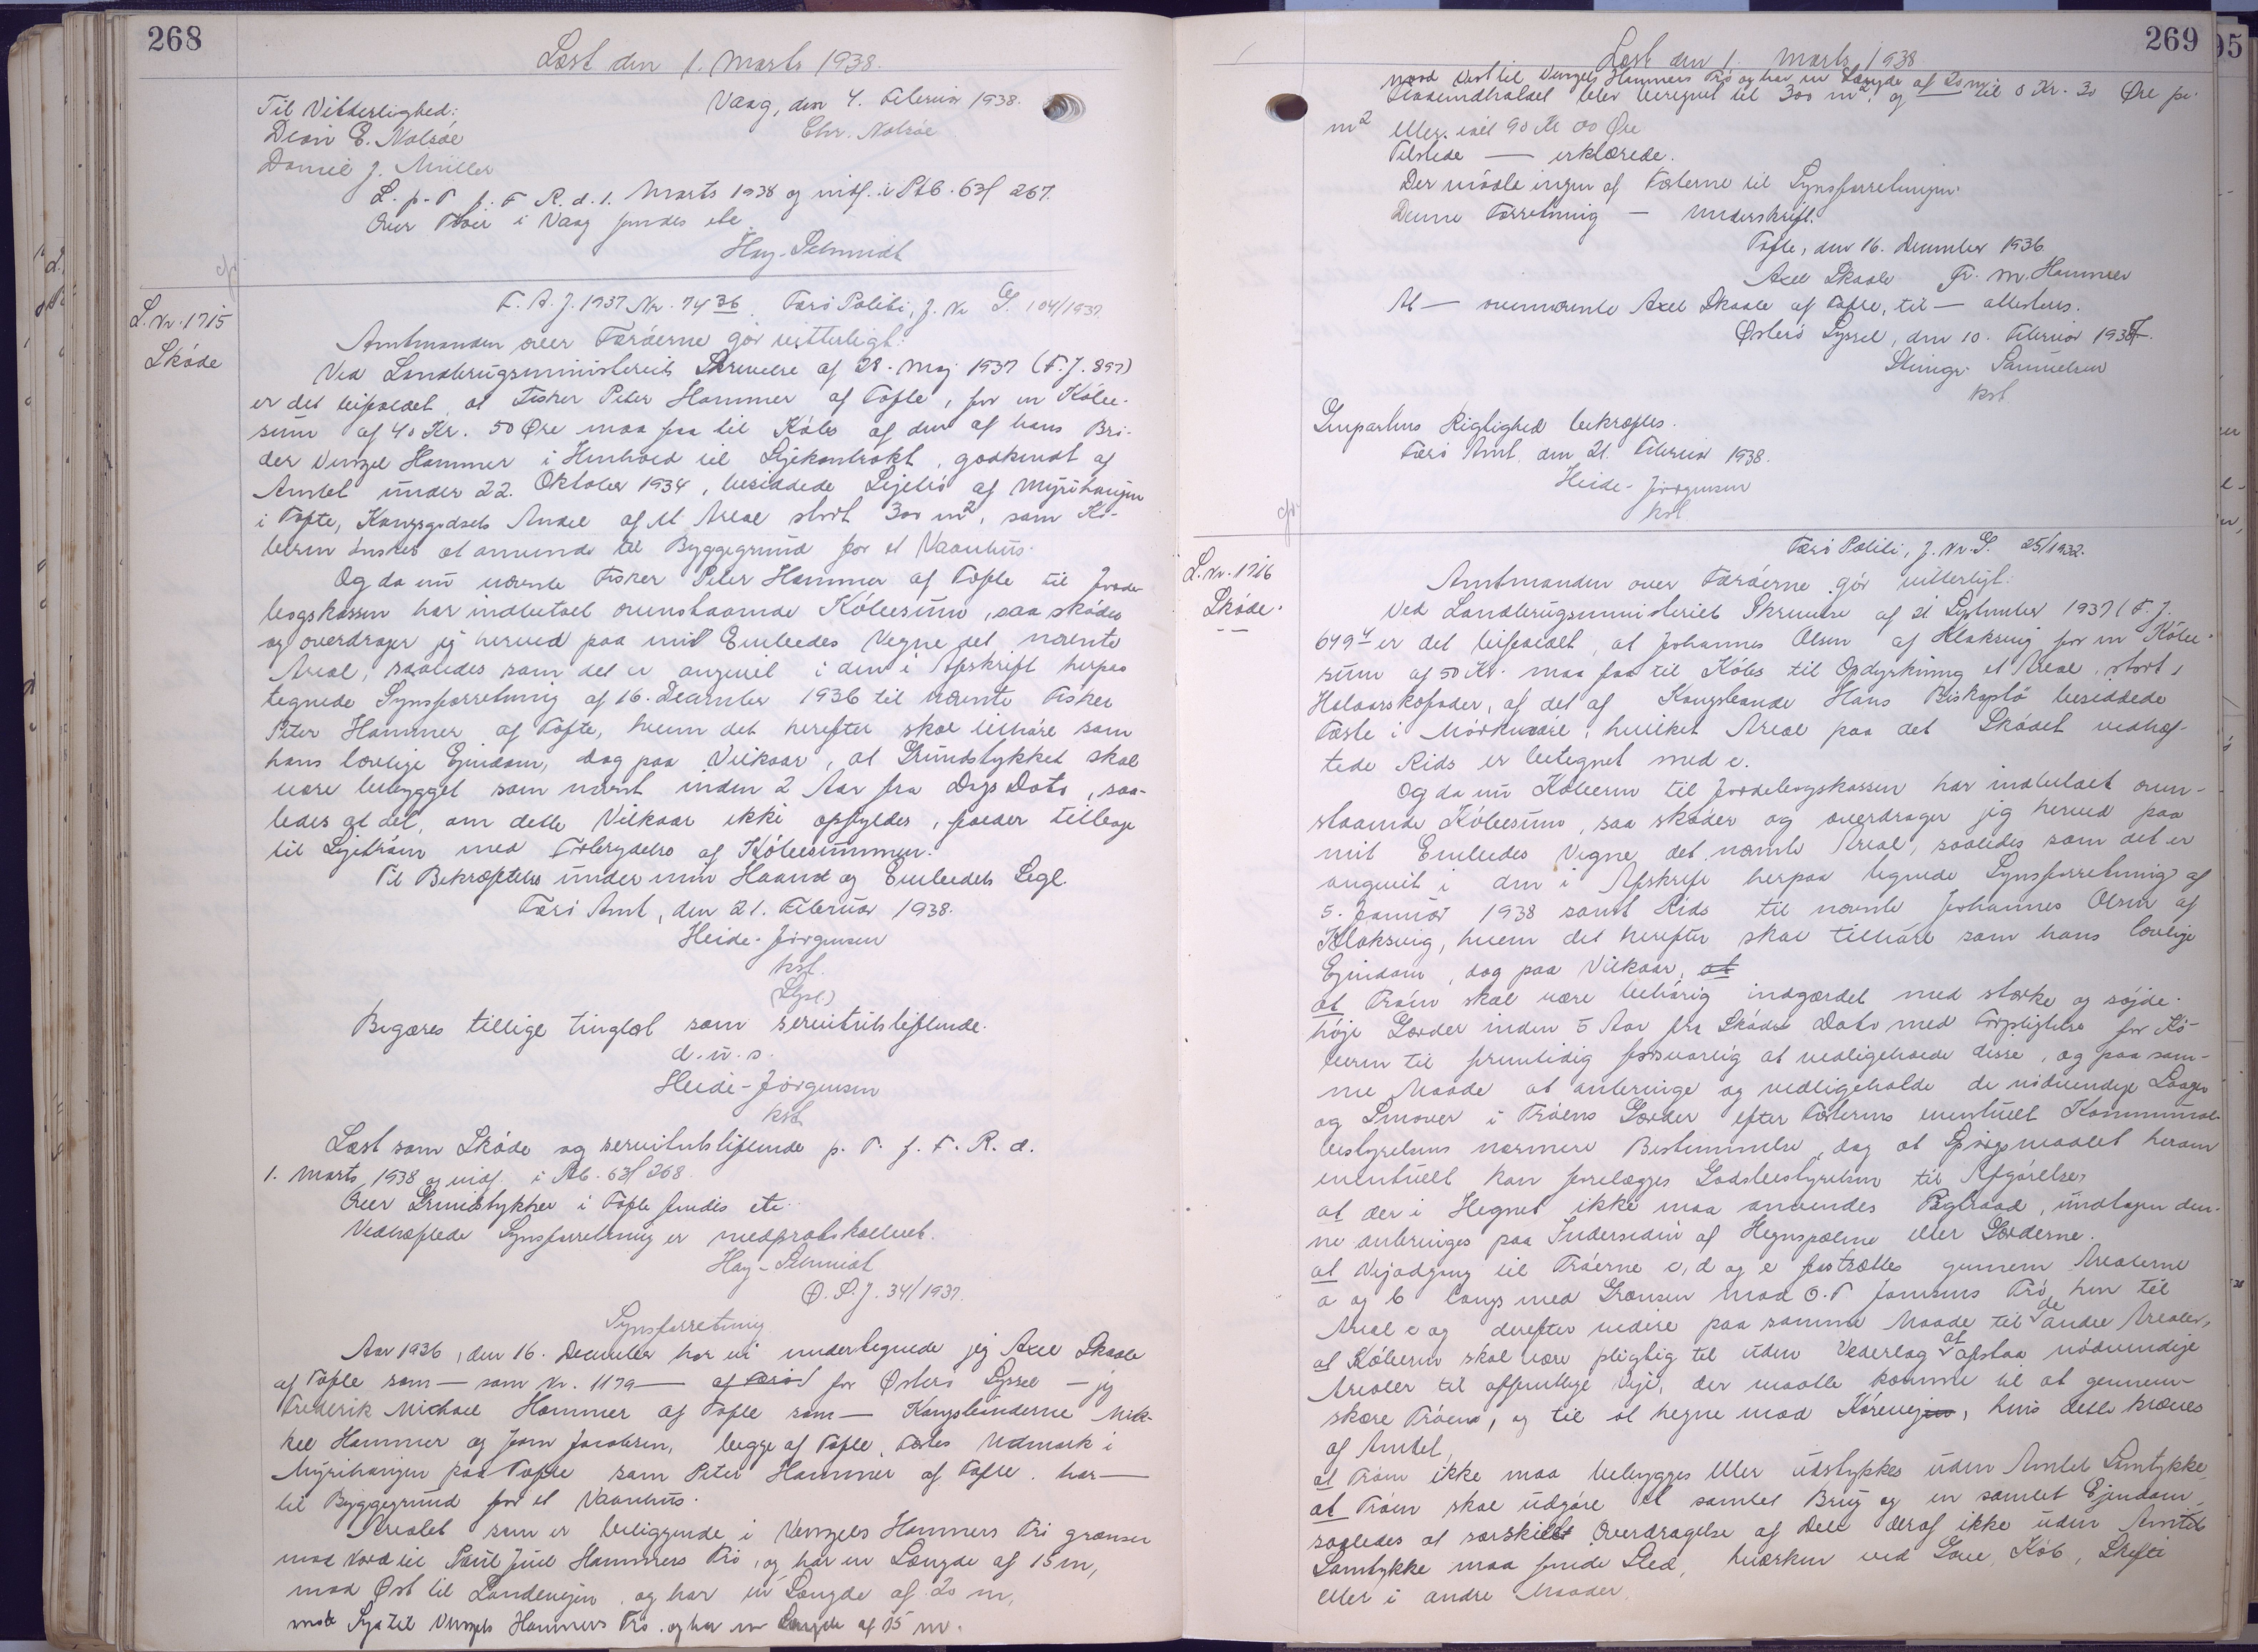 268
Læst den 1. Marts 1938.
Til Vitterlighed: Vaag, den 4. Februar 1938.
E. Nolsöe Chr. Nolsöe
Daniel J. Müller
L. p. T. f. F. R. d. 1. Marts 1938 og indf. i Ptb. 63f 267.
Over Tröer i Vaag findes etc.
Hay-Schmidt
L. Nr. 1715
Sköde
F. A. J. 1937 Nr. 7436. Færö Politi, J. Nr. G. 104/1937
Amtmanden over Færöerne gör vitterligt:
Ved Landbrugsministeriets Skrivelse af 28. Maj 1937 (F. J. 897)
er det bifaldet, at Fisker Peter Hammer af Tofte, for en Köbe-
sum af 40 Kr. 50 Øre maa faa til Köbs af den af hans Bro-
der Venzel Hammer i Henhold til Lejekontrakt, godkendt af
Amtet under 22. Oktober 1934, besiddede Lejetrö af Myrihaugen
i Tofte, Kongsgodsets Andel af et Areal stort 300 m², som Kö-
beren önsker at anvende til Byggegrund for et Vaanhus.
Og da nu nævnte Fisker Peter Hammer af Tofte til Jorde-
bogskassen har indbetalt ovenstaaende Köbesum, saa sköder
og overdrager jeg herved paa mit Embedes Vegne det nævnte
Areal, saaledes som det er angivet i den i Afskrift herpaa
tegnede Synsforretning af 16. December 1936 til nævnte Fisker
Peter Hammer af Tofte, hvem det herefter skal tilhöre som
hans lovlige Ejendom, dog paa Vilkaar, at Grundstykket skal
være bebygget som nævnt inden 2 Aar fra Dags Dato, saa-
ledes at det, om dette Vilkaar ikke opfyldes, falder tilbage
til Lejetröen med Fortrydelse af Köbesummen.
Til Bekræftelse under min Haand og Embedets Segl.
Færö Amt, den 21. Februar 1938.
Heide-Jörgensen
kst.
(Segl)
Begæres tillige tinglæst som servitutstiftende.
d. u. s.
Heide-Jörgensen
kst.
Læst som Sköde og servitutstiftende p. T. f. F. R. d.
1. Marts 1938 og indf. i Ptb. 63f 268.
Over Grundstykker i Tofte findes etc.
Vedhæftede Synsforretning er medprotokolleret.
Hay-Schmidt
Ø. S. J. 34/1937.
Synsforretning
Aar 1936, den 16. December har vi undertegnede jeg Axel Skaale
af Tofte som — som Nr. 1179 — af for Østerö Syssel — jeg
Frederik Michael Hammer af Tofte som — Kongsbönderne Mik-
kel Hammer og Joen Jacobsen, begge af Tofte, Fæstes Udmark i
Myrihaugen paa Tofte som Peter Hammer af Tofte. har —
til Byggegrund for et Vaanhus.
Arealet som er beliggende i Venzels Hammers Trö grænser
mod Nord til Paul Juul Hammers Trö, og har en Længde af 15 m,
mod Øst til Landevejen, og har en Længde af 20 m,
mod Syd til Venzels Hammers Trö. og har en Længde af 15 m.
269
Læst den 1. Marts 1938
mod Vest til Venzels Hammers Trö og har en Længde af 20 m,
Fladeindholdet blev beregnet til 300 m². og til 0 Kr. 30 Øre pr.
m² eller ialt 90 Kr 00 Øre
Tilstede — erklærede.
Der mödte ingen af Fæsterne til Synsforretningen.
Denne Forretning — Underskrift.
Tofte, den 16. December 1936
Axel Skaale Fr. M. Hammer
At — ovennævnte Axel Skaale af Tofte, til — attesteres.
Østerö Syssel, den 10. Februar 1937.
Steingr. Samuelsen
kst
Genpartens Rigtighed bekræftes.
Færö Amt, den 21. Februar 1938.
Heide-Jörgensen
kst.
L. Nr. 1716
Sköde.
Færö Politi, J. Nr. G. 25/1932.
Amtmanden over Færöerne gör vitterligt:
Ved Landbrugsministeriets Skrivelse af 21 September 1937 (F. J.
649 er det bifaldet, at Johannes Olsen af Klaksvig for en Köbe-
sum af 50 Kr. maa faa til Köbs til Opdyrkning et Areal, stort 1
Halvaarskofoder, af det af Kongsbonde Hans Biskopstö besiddede
Fæste i Mörkveöre, hvilket Areal paa det Sködet vedhæf-
tede Rids er betegnet med c.
Og da nu Köberen til Jordebogskassen har indbetalt oven-
staaende Köbesum, saa sköder og overdrager jeg herved paa
mit Embedes Vegne det nævnte Areal, saaledes som det er
angivet i den i Afskrift herpaa tegnede Synsforretning af
5. Januar 1938 samt Rids til nævnte Johannes Olsen af
Klaksvig, hvem det herefter skal tilhöre som hans lovlige
Ejendom, dog paa Vilkaar, at
at Tröen skal være behörig indgærdet med stærke og söjde-
höje Gærder inden 5 Aar fra Sködets Dato med Forpligtelse for Kö-
beren til fremtidig forsvarlig at vedligeholde disse, og paa sam-
me Maade at anbringe og vedligeholde de nödvendige Laager
og Smover i Tröens Gærder efter Fæsterens eventuelt Kommunal-
bestyrelsens nærmere Bestemmelse, dog at Spörgsmaalet herom
eventuelt kan forelægges Godsbestyrelsen til Afgörelse,
at der i Hegnet ikke maa anvendes Pigtraad, undtagen den-
ne anbringes paa Indersiden af Hegnspælene eller Gærderne.
at Vejadgang til Tröerne c, d og e fastsættes gennem Arealerne
a og b langs med Grænsen mod O. T Joensens Trö, hen til
Areal c og derefter videre paa samme Maade til de andre Arealer,
at Köberen skal være pligtig til uden Vederlag at afstaa nödvendige
Arealer til offentlige Veje, der maatte komme til at gennem-
skære Tröen, og til at hegne mod Körevejen, hvis dette kræves
af Amtet,
at Tröen ikke maa bebygges eller udstykkes uden Amtets Samtykke,
at Tröen skal udgöre et samlet Brug og en samlet Ejendom,
saaledes at særskilt Overdragelse af Dele deraf ikke uden Amtets
Samtykke maa finde Sted, hverken ved Gave, Köb, Skifte
eller i andre Maader.